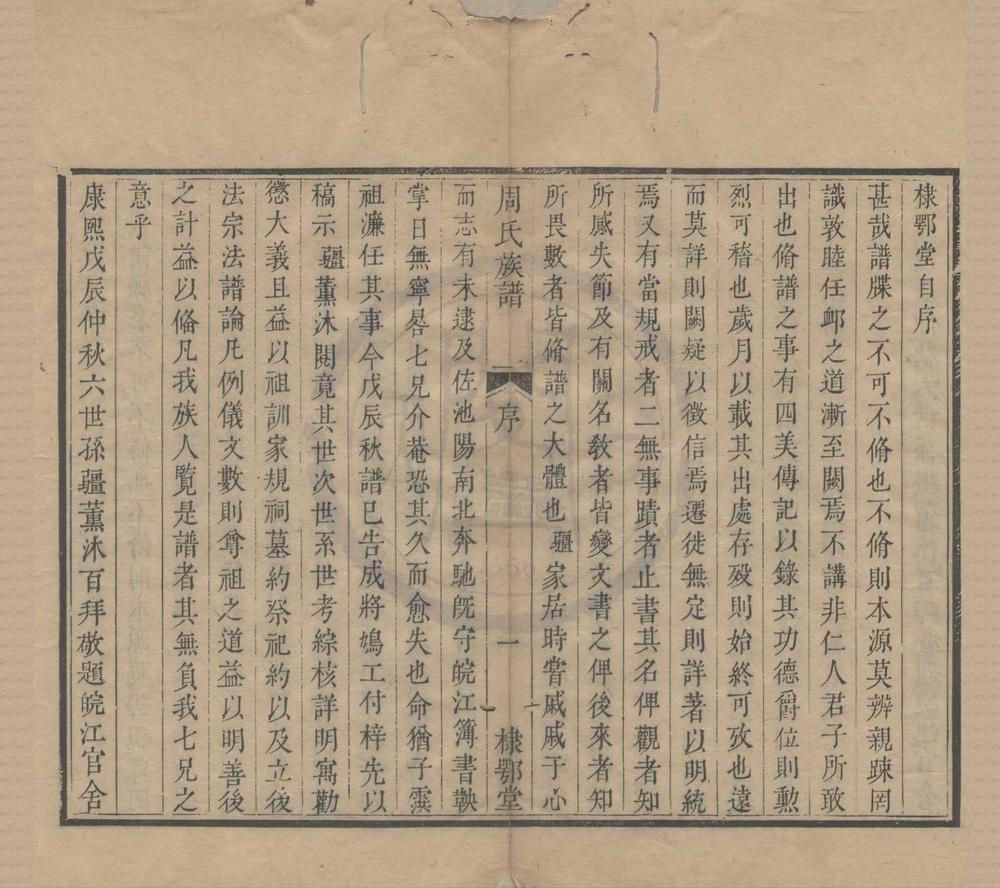 棣鄂堂自序
甚哉譜牒之不可不脩也不脩則本源莫辨親踈罔
識敦睦任卹之道漸至闕焉不講非仁人君子所敢
出也脩譜之事有四美傳記以錄其功德爵位則勳
烈可稽也歲月以載其出處存歿則始終可攷也遠
而莫詳則闕疑以徵信焉遷徙無定則詳著以明統
焉又有當規戒者二無事蹟者止書其名俾觀者知
所感失節及有關名敎者皆變文書之俾後來者知
所畏數者皆脩譜之大體也疆家居時嘗戚戚于心
周氏族譜 序 一 棣鄂堂
而志有未逮及佐池陽南北奔馳旣守皖江簿書鞅
掌日無寧晷七兄介菴恐其久而愈失也命猶子霙
祖濂任其事今戊辰秋譜已告成將鳩工付梓先以
稿示疆薰沐閱竟其世次世系世考綜核詳明寓勸
懲大義且益以祖訓家規祠墓約祭祀約以及立後
法宗法譜論凡例儀文數則尊祖之道益以明善後
之計益以脩凡我族人覽是譜者其無負我七兄之
意乎
康熙戊辰仲秋六世孫疆薰沐百拜敬題皖江官舍